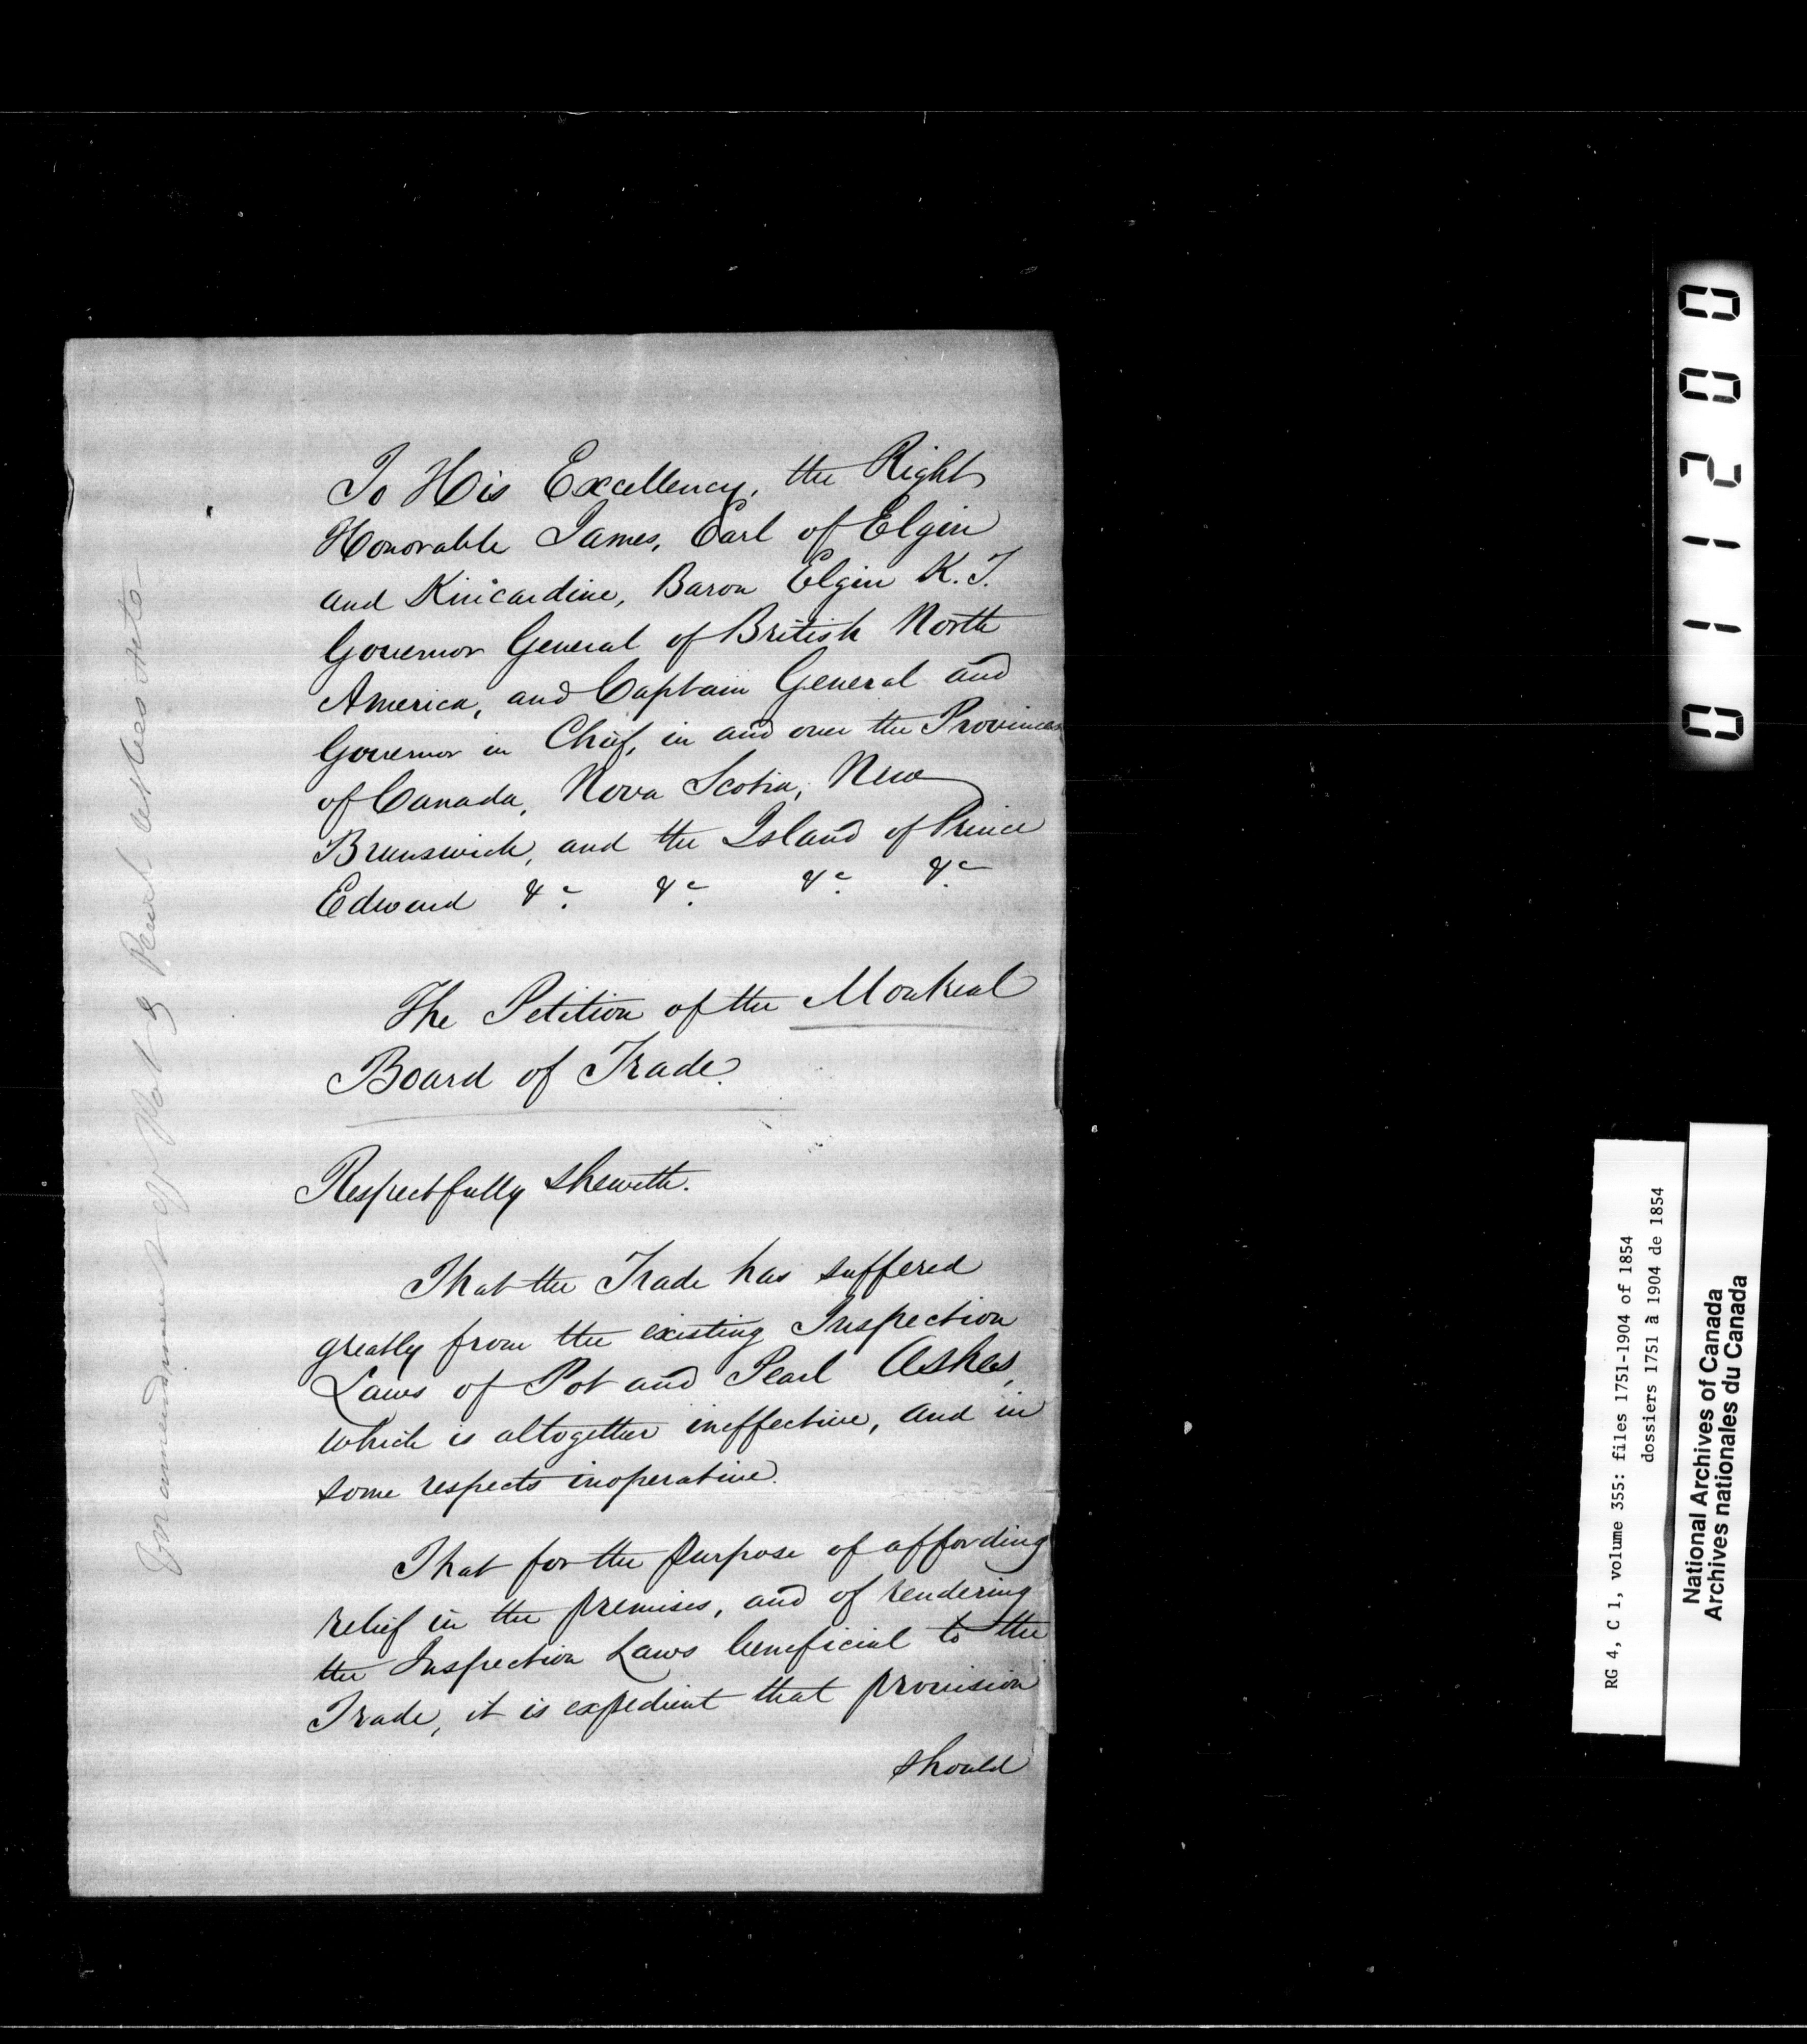 To His Excellency, the Right
Honorable James, Earl of Elgin
and Kincardine, Baron Elgin K.T.
Governor General of British North
America, and Captain General and
Governor in Chief, in and over the Provinces
of Canada, Nova Scotia, New
Brunswick, and the Island of Prince
Edward &c. &c. &c. &c.
The Petition of the Montreal
Board of Trade.
Respectfully Sheweth.
That the Trade has suffered
greatly from the existing Inspection
Laws of Pot and Pearl Ashes,
which is altogether ineffective, and in
some respects inoperative.
That for the purpose of affording
relief in the premises, and of rendering
the Inspection Laws beneficial to the
Trade, it is expedient that provision
should
For amendment of Pot & Pearl Ashes Act
011200
RG 4, C 1, volume 355: files 1751-1904 of 1854
dossiers 1751 à 1904 de 1854
National Archives of Canada
Archives nationales du Canada